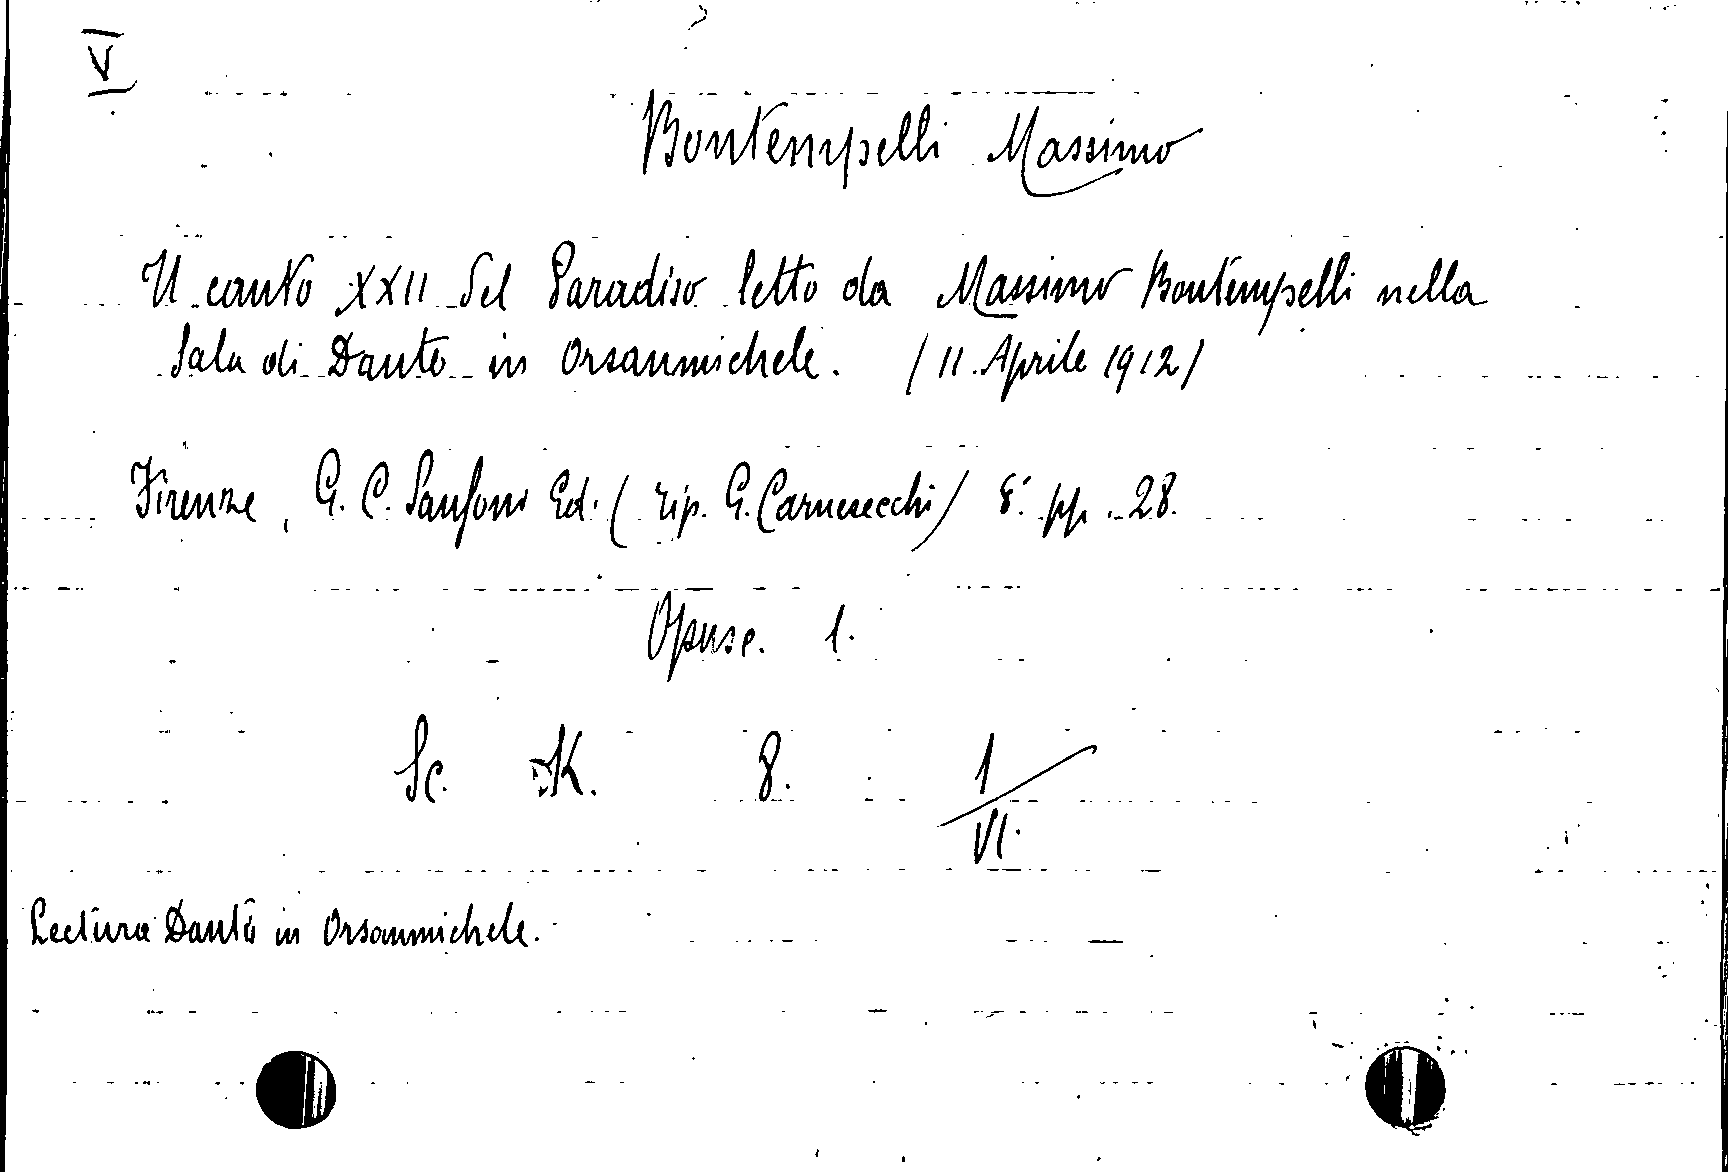 V
Bontempelli Massimo
Il canto XXII del Paradiso letto da Massimo Bontempelli nella
Sala di Dante in Orsanmichele. (11 Aprile 1912)
Firenze, G. C. Sansoni Ed. (tip. G. Carnesecchi) 8° pp. 28.
Opusc. 1.
Sc. K. 8. 1/VI.
Lectura Dantis in Orsanmichele.